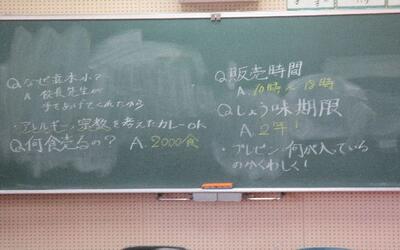 Q なぜ真本小?
A 校長先生が
手をあげてくれたから
・アレルギー、宗教を考えたカレーOK
Q何食売るの? A.2000食
Q販売時間
A 10時~15時
Qしょう味期限
A 2年!
・プレゼン 何が入っている
のかくわしく!